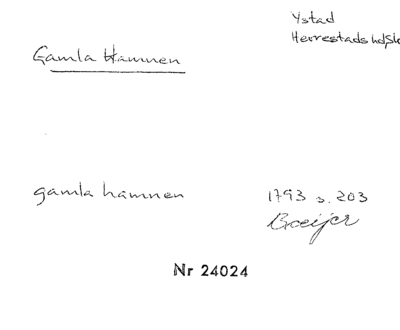 Ystad
Herrestads hd, Sk
Gamla Hamnen
gamla hamnen
1793 s. 203
Breijer
Nr 24024